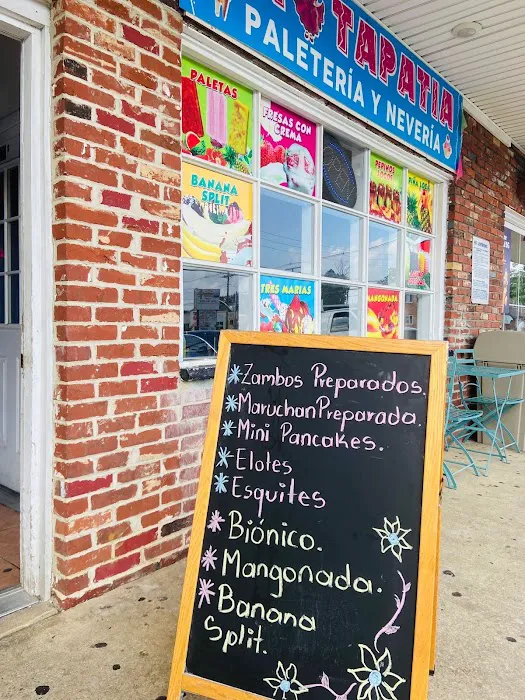 TAPATIA
PALETERÍA Y NEVERÍA
PALETAS
FRESAS CON
CREMA
PEPINOS
PIÑA LOCA
BANANA
SPLIT
TRES MARIAS
MANGONADA
Zambos Preparados.
Maruchan Preparada.
Mini Pancakes.
Elotes
Esquites
Biónico.
Mangonada.
Banana
Split.